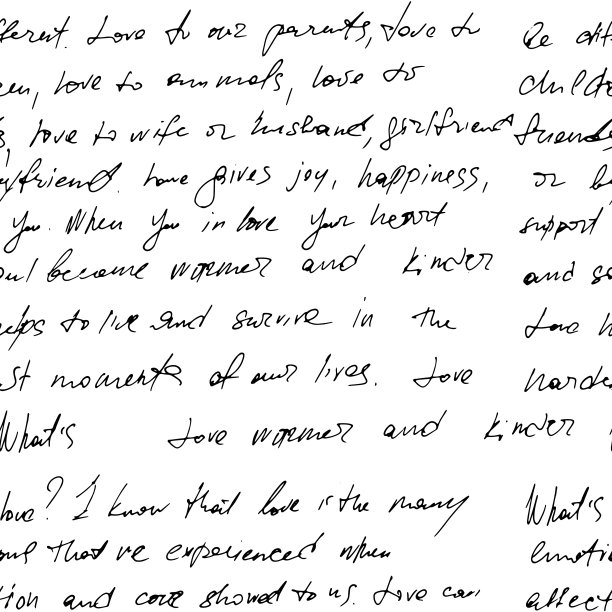 fferent. Love to our parents, love to Be diff
en, love to animals, love to childre
s, love to wife or husband, girlfriend friends
yfriend. Love gives joy, happiness, or b
you. When you in love your heart support
oul become warmer and kinder and so
elps to live and survive in the Love h
st moments of our lives. Love hardes
What's Love warmer and kinder
love? I know that love is the many What's
ons that we experienced when emotio
tion and care showed to us. Love can affect